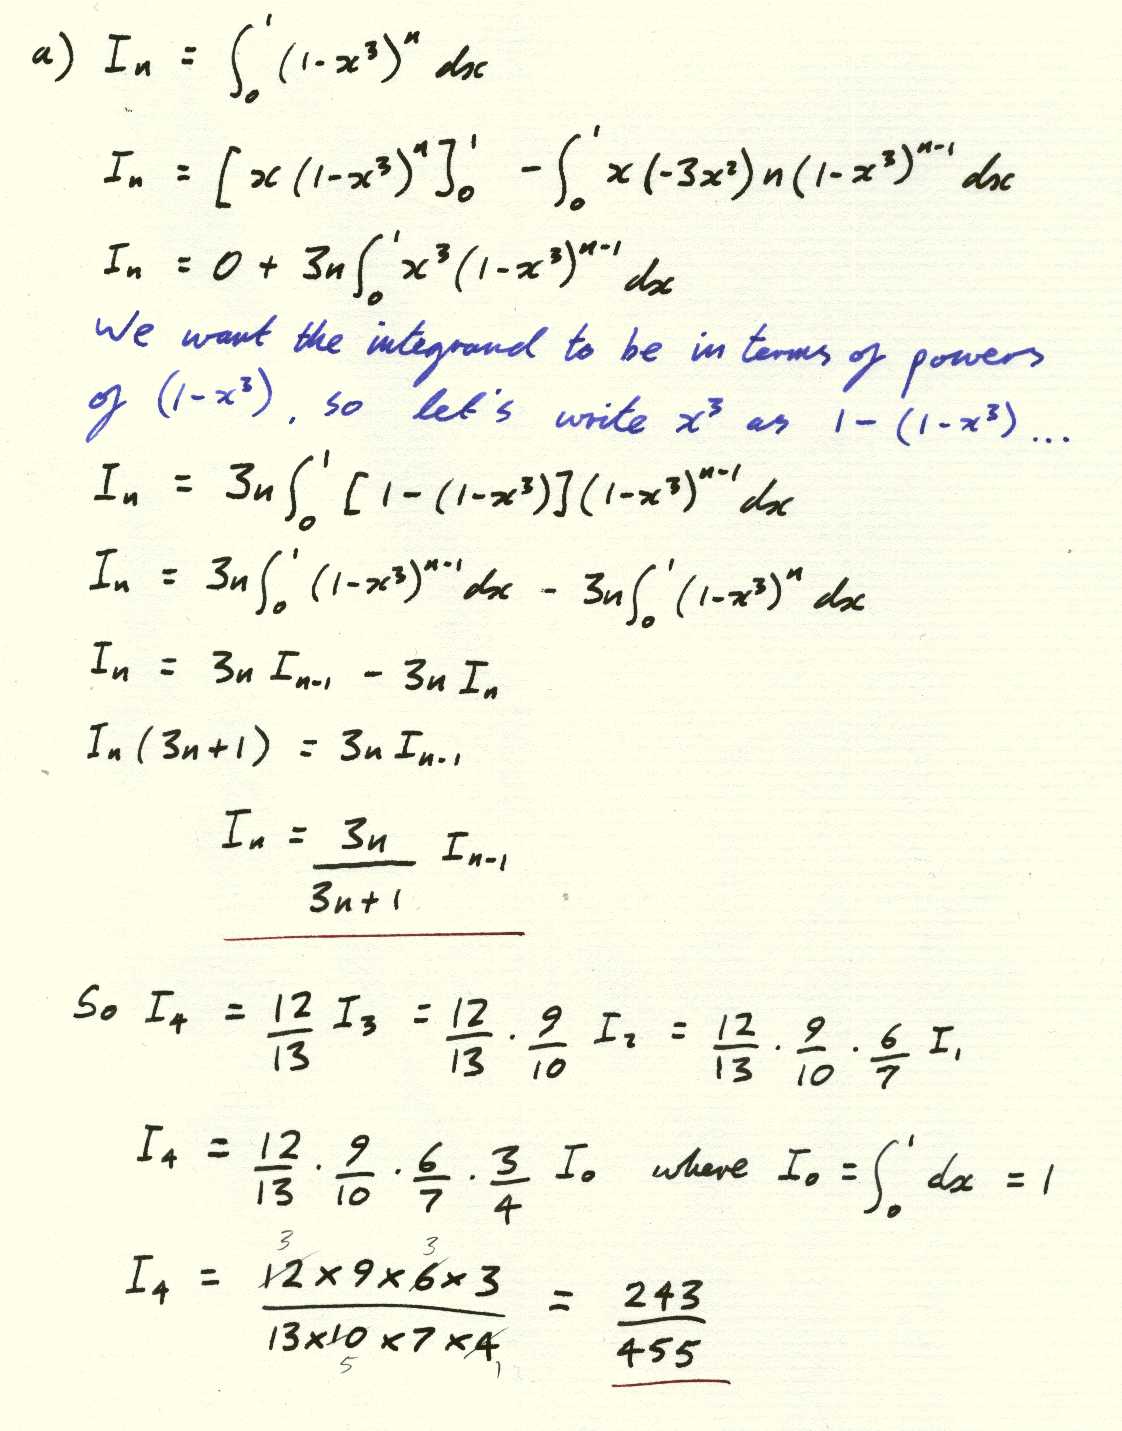 a) Iₙ = ∫₀¹ (1-x³)ⁿ dx
Iₙ = [x(1-x³)ⁿ]₀¹ - ∫₀¹ x(-3x²)n(1-x³)ⁿ⁻¹ dx
Iₙ = 0 + 3n∫₀¹ x³(1-x³)ⁿ⁻¹ dx
We want the integrand to be in terms of powers
of (1-x³), so let's write x³ as 1-(1-x³)...
Iₙ = 3n∫₀¹ [1-(1-x³)](1-x³)ⁿ⁻¹ dx
Iₙ = 3n∫₀¹ (1-x³)ⁿ⁻¹ dx - 3n∫₀¹ (1-x³)ⁿ dx
Iₙ = 3n Iₙ₋₁ - 3n Iₙ
Iₙ(3n+1) = 3n Iₙ₋₁
Iₙ = 3n/(3n+1) Iₙ₋₁
So I₄ = 12/13 I₃ = 12/13 · 9/10 I₂ = 12/13 · 9/10 · 6/7 I₁
I₄ = 12/13 · 9/10 · 6/7 · 3/4 I₀ where I₀ = ∫₀¹ dx = 1
3 3
I₄ = (12×9×6×3)/(13×10×7×4) = 243/455
5 1